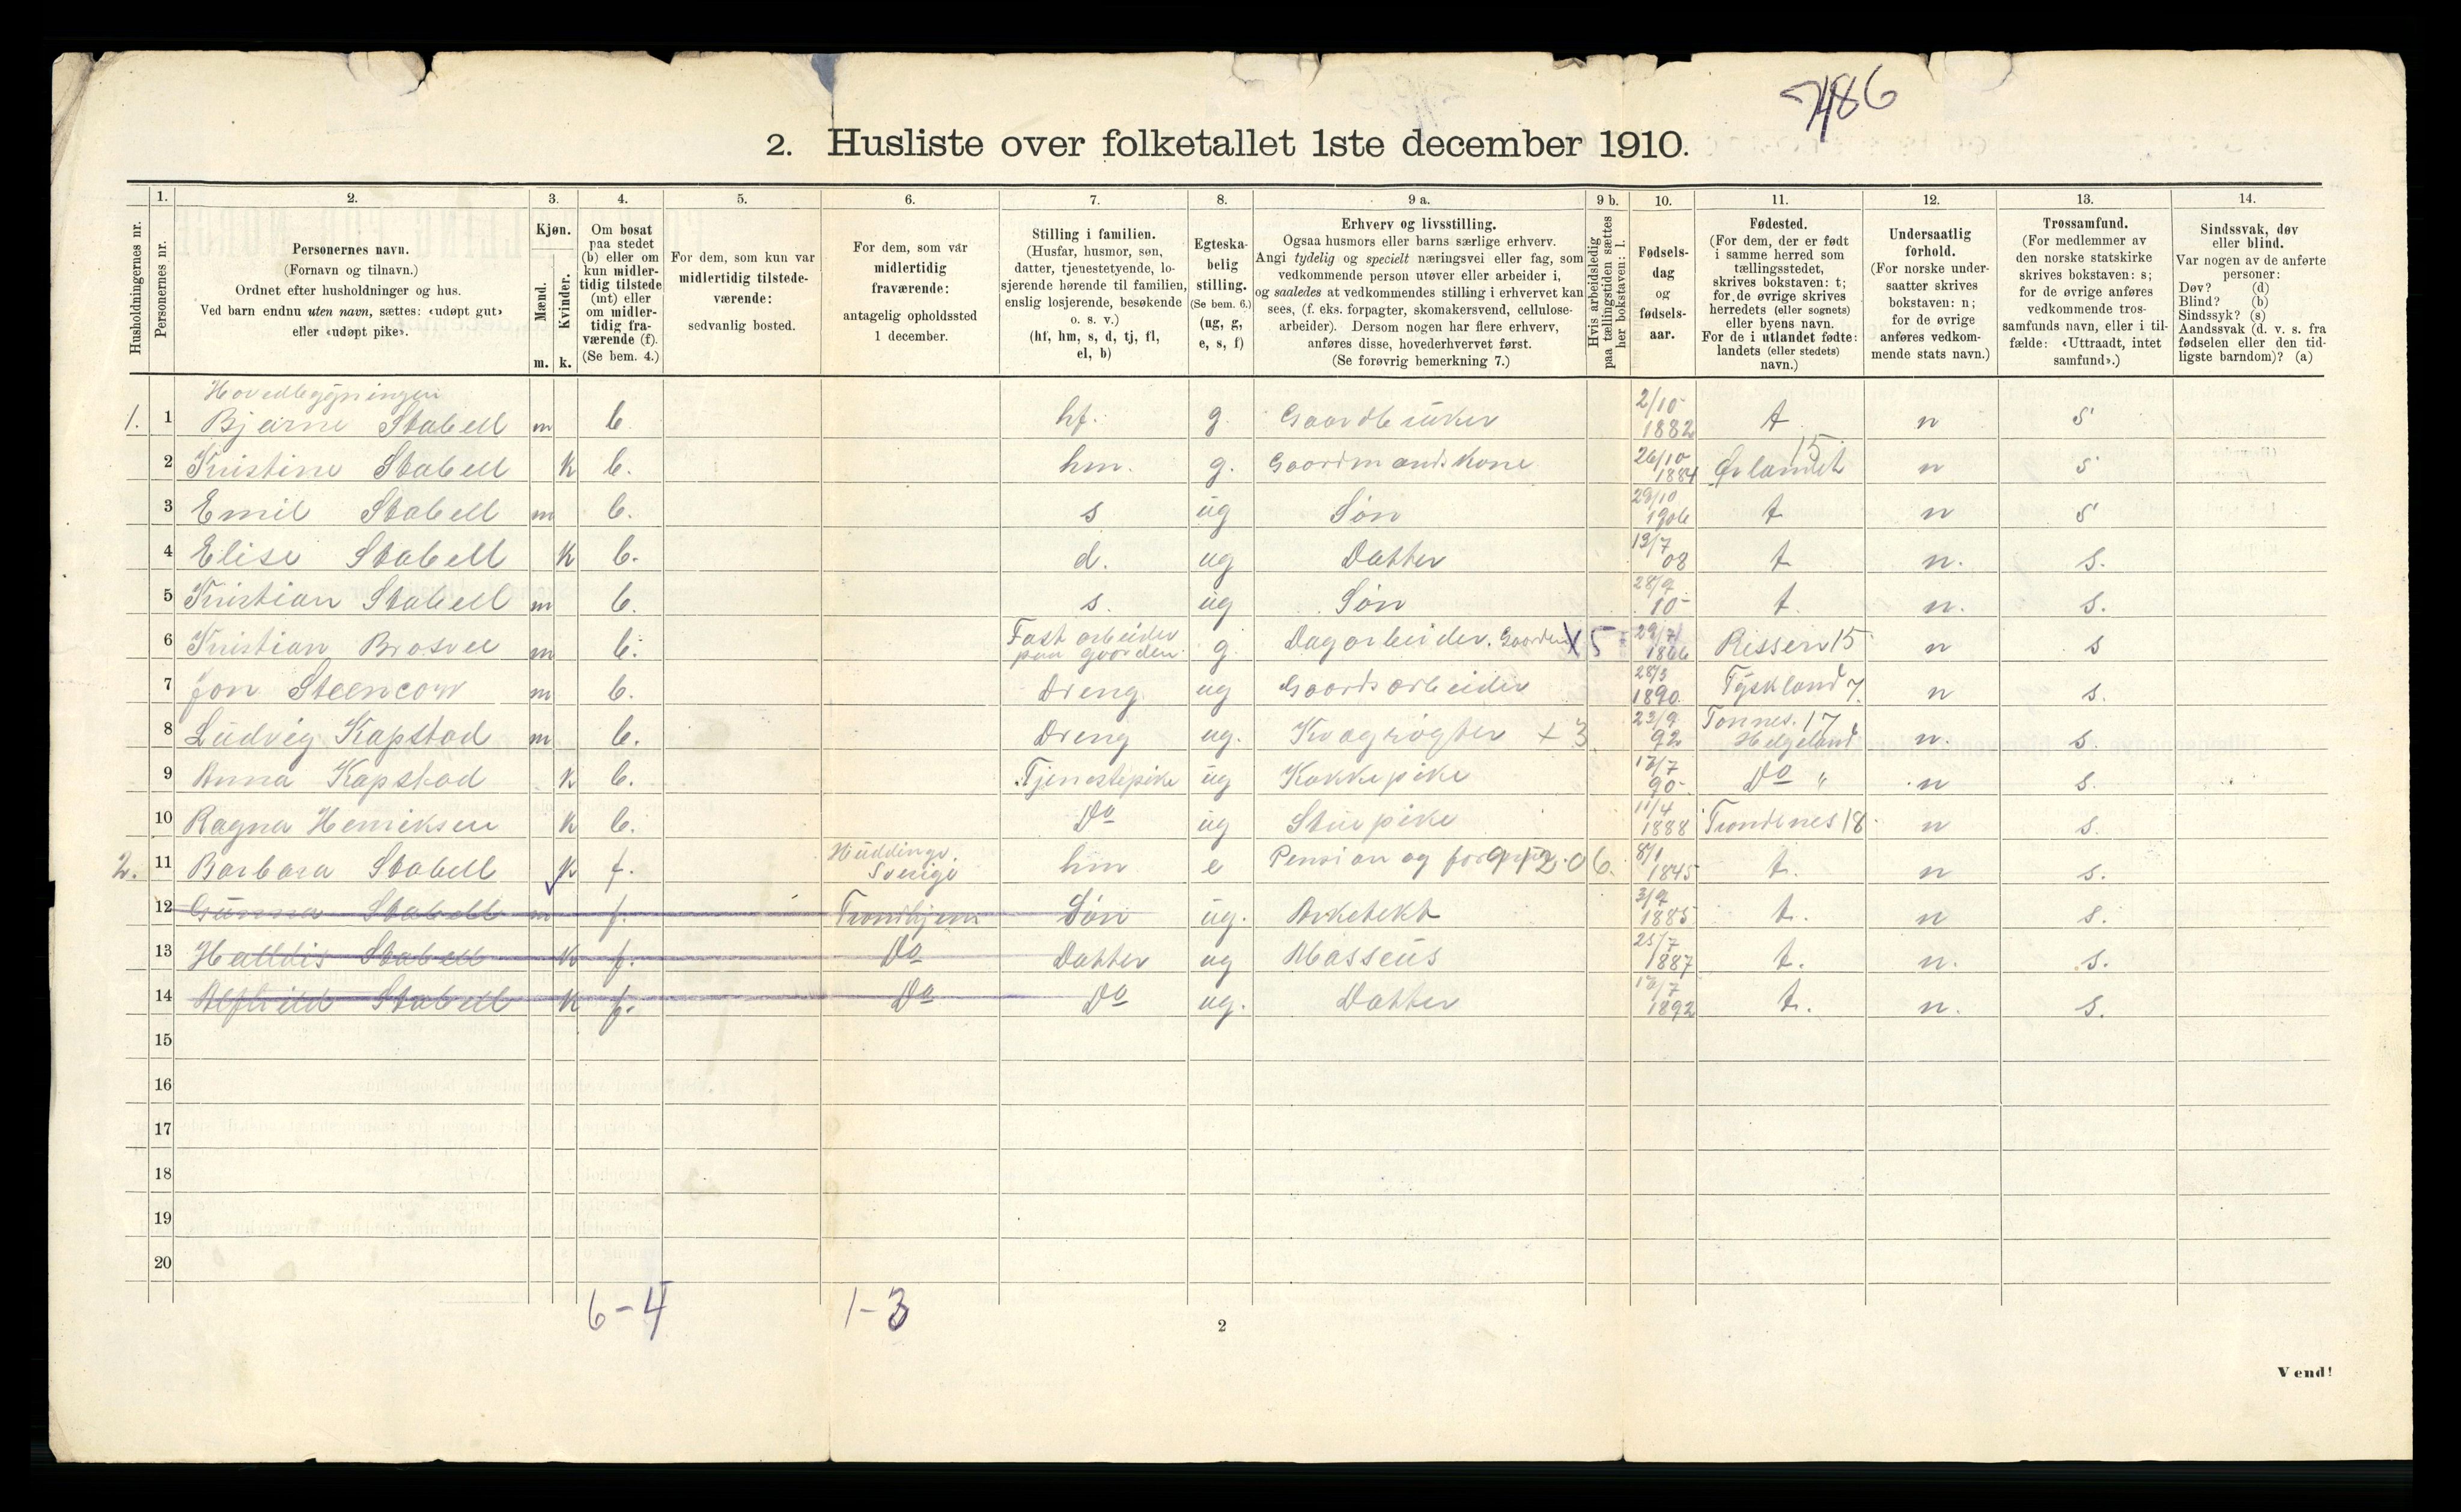 7486
2. Husliste over folketallet 1ste december 1910.
Husholdningernes nr.
1.
Personernes nr.
2.
Personernes navn.
(Fornavn og tilnavn.)
Ordnet efter husholdninger og hus.
Ved barn endnu uten navn, sættes: «udøpt gut»
eller «udøpt pike».
3.
Kjøn.
Mænd.
Kvinder.
m. k.
4.
Om bosat
paa stedet
(b) eller om
kun midler-
tidig tilstede
(mt) eller
om midler-
tidig fra-
værende (f).
(Se bem. 4.)
5.
For dem, som kun var
midlertidig tilstede-
værende:
sedvanlig bosted.
6.
For dem, som var
midlertidig
fraværende:
antagelig opholdssted
1 december.
7.
Stilling i familien.
(Husfar, husmor, søn,
datter, tjenestetyende, lo-
sjerende hørende til familien,
enslig losjerende, besøkende
o. s. v.)
(hf, hm, s, d, tj, fl,
el, b)
8.
Egteska-
belig
stilling.
(Se bem. 6.)
(ug, g,
e, s, f)
9 a.
Erhverv og livsstilling.
Ogsaa husmors eller barns særlige erhverv.
Angi tydelig og specielt næringsvei eller fag, som
vedkommende person utøver eller arbeider i,
og saaledes at vedkommendes stilling i erhvervet kan
sees, (f. eks. forpagter, skomakersvend, cellulose-
arbeider). Dersom nogen har flere erhverv,
anføres disse, hovederhvervet først.
(Se forøvrig bemerkning 7.)
9 b.
Hvis arbeidsledig
paa tællingstiden sættes
her bokstaven: l.
10.
Fødsels-
dag
og
fødsels-
aar.
11.
Fødested.
(For dem, der er født
i samme herred som
tællingsstedet,
skrives bokstaven: t;
for de øvrige skrives
herredets (eller sognets)
eller byens navn.
For de i utlandet fødte:
landets (eller stedets)
navn.)
12.
Undersaatlig
forhold.
(For norske under-
saatter skrives
bokstaven: n;
for de øvrige
anføres vedkom-
mende stats navn.)
13.
Trossamfund.
(For medlemmer av
den norske statskirke
skrives bokstaven: s;
for de øvrige anføres
vedkommende tros-
samfunds navn, eller i til-
fælde: «Uttraadt, intet
samfund».)
14.
Sindssvak, døv
eller blind.
Var nogen av de anførte
personer:
Døv? (d)
Blind? (b)
Sindssyk? (s)
Aandssvak (d. v. s. fra
fødselen eller den tid-
ligste barndom)? (a)
Hovedbygningen
1. 1 Bjarne Stabell m b. hf. g. Gaardbruker 2/10 1882 t n s
2 Kristine Stabell k b. hm. g. Gaardmandskone 26/10 1884 Ørlandet 15 n s
3 Emil Stabell m b. s ug Søn 29/10 1906 t n s
4 Elise Stabell k b. d. ug Datter 13/7 08 t n. s.
5 Kristian Stabell m b. s. ug Søn 28/9 10 t. n. s.
6 Kristian m b. Fast arbeider paa gaarden g. Dagarbeider. Gaarden X 5 29/7 Rissen 15 n s
7 Jon m b. Dreng ug Gaardsarbeider 28/3 1890. Tyskland 7. n s.
8 Ludvig Kapstad m b. Dreng ug. Kvægrøgter + 3. 23/9 92 Tonnes. 17 Helgeland n. s.
9 Anna Kapstad k b. Tjenestepike ug Kokkepike 17/7 90 Do " n s.
10 Ragna Henriksen k b. Do ug Stuepike 11/4 1888 Trondenes 18 n s.
2. 11 Barbara Stabell k f. Huddinge. Sverige hm e Pension og 912.06. 8/1 1845 t. n s.
12 Gunnar Stabell m f. Trondhjem Søn ug. Arketekt 3/9 1885 t. n s.
13 Halldis Stabell k f. Do Datter ug Masseus 25/7 1887 t. n. s.
14 Alfhild Stabell k f. Do Do ug. Datter 1892 t. n. s.
15
16
17
18
19
20
6-4 1-3
2
Vend!